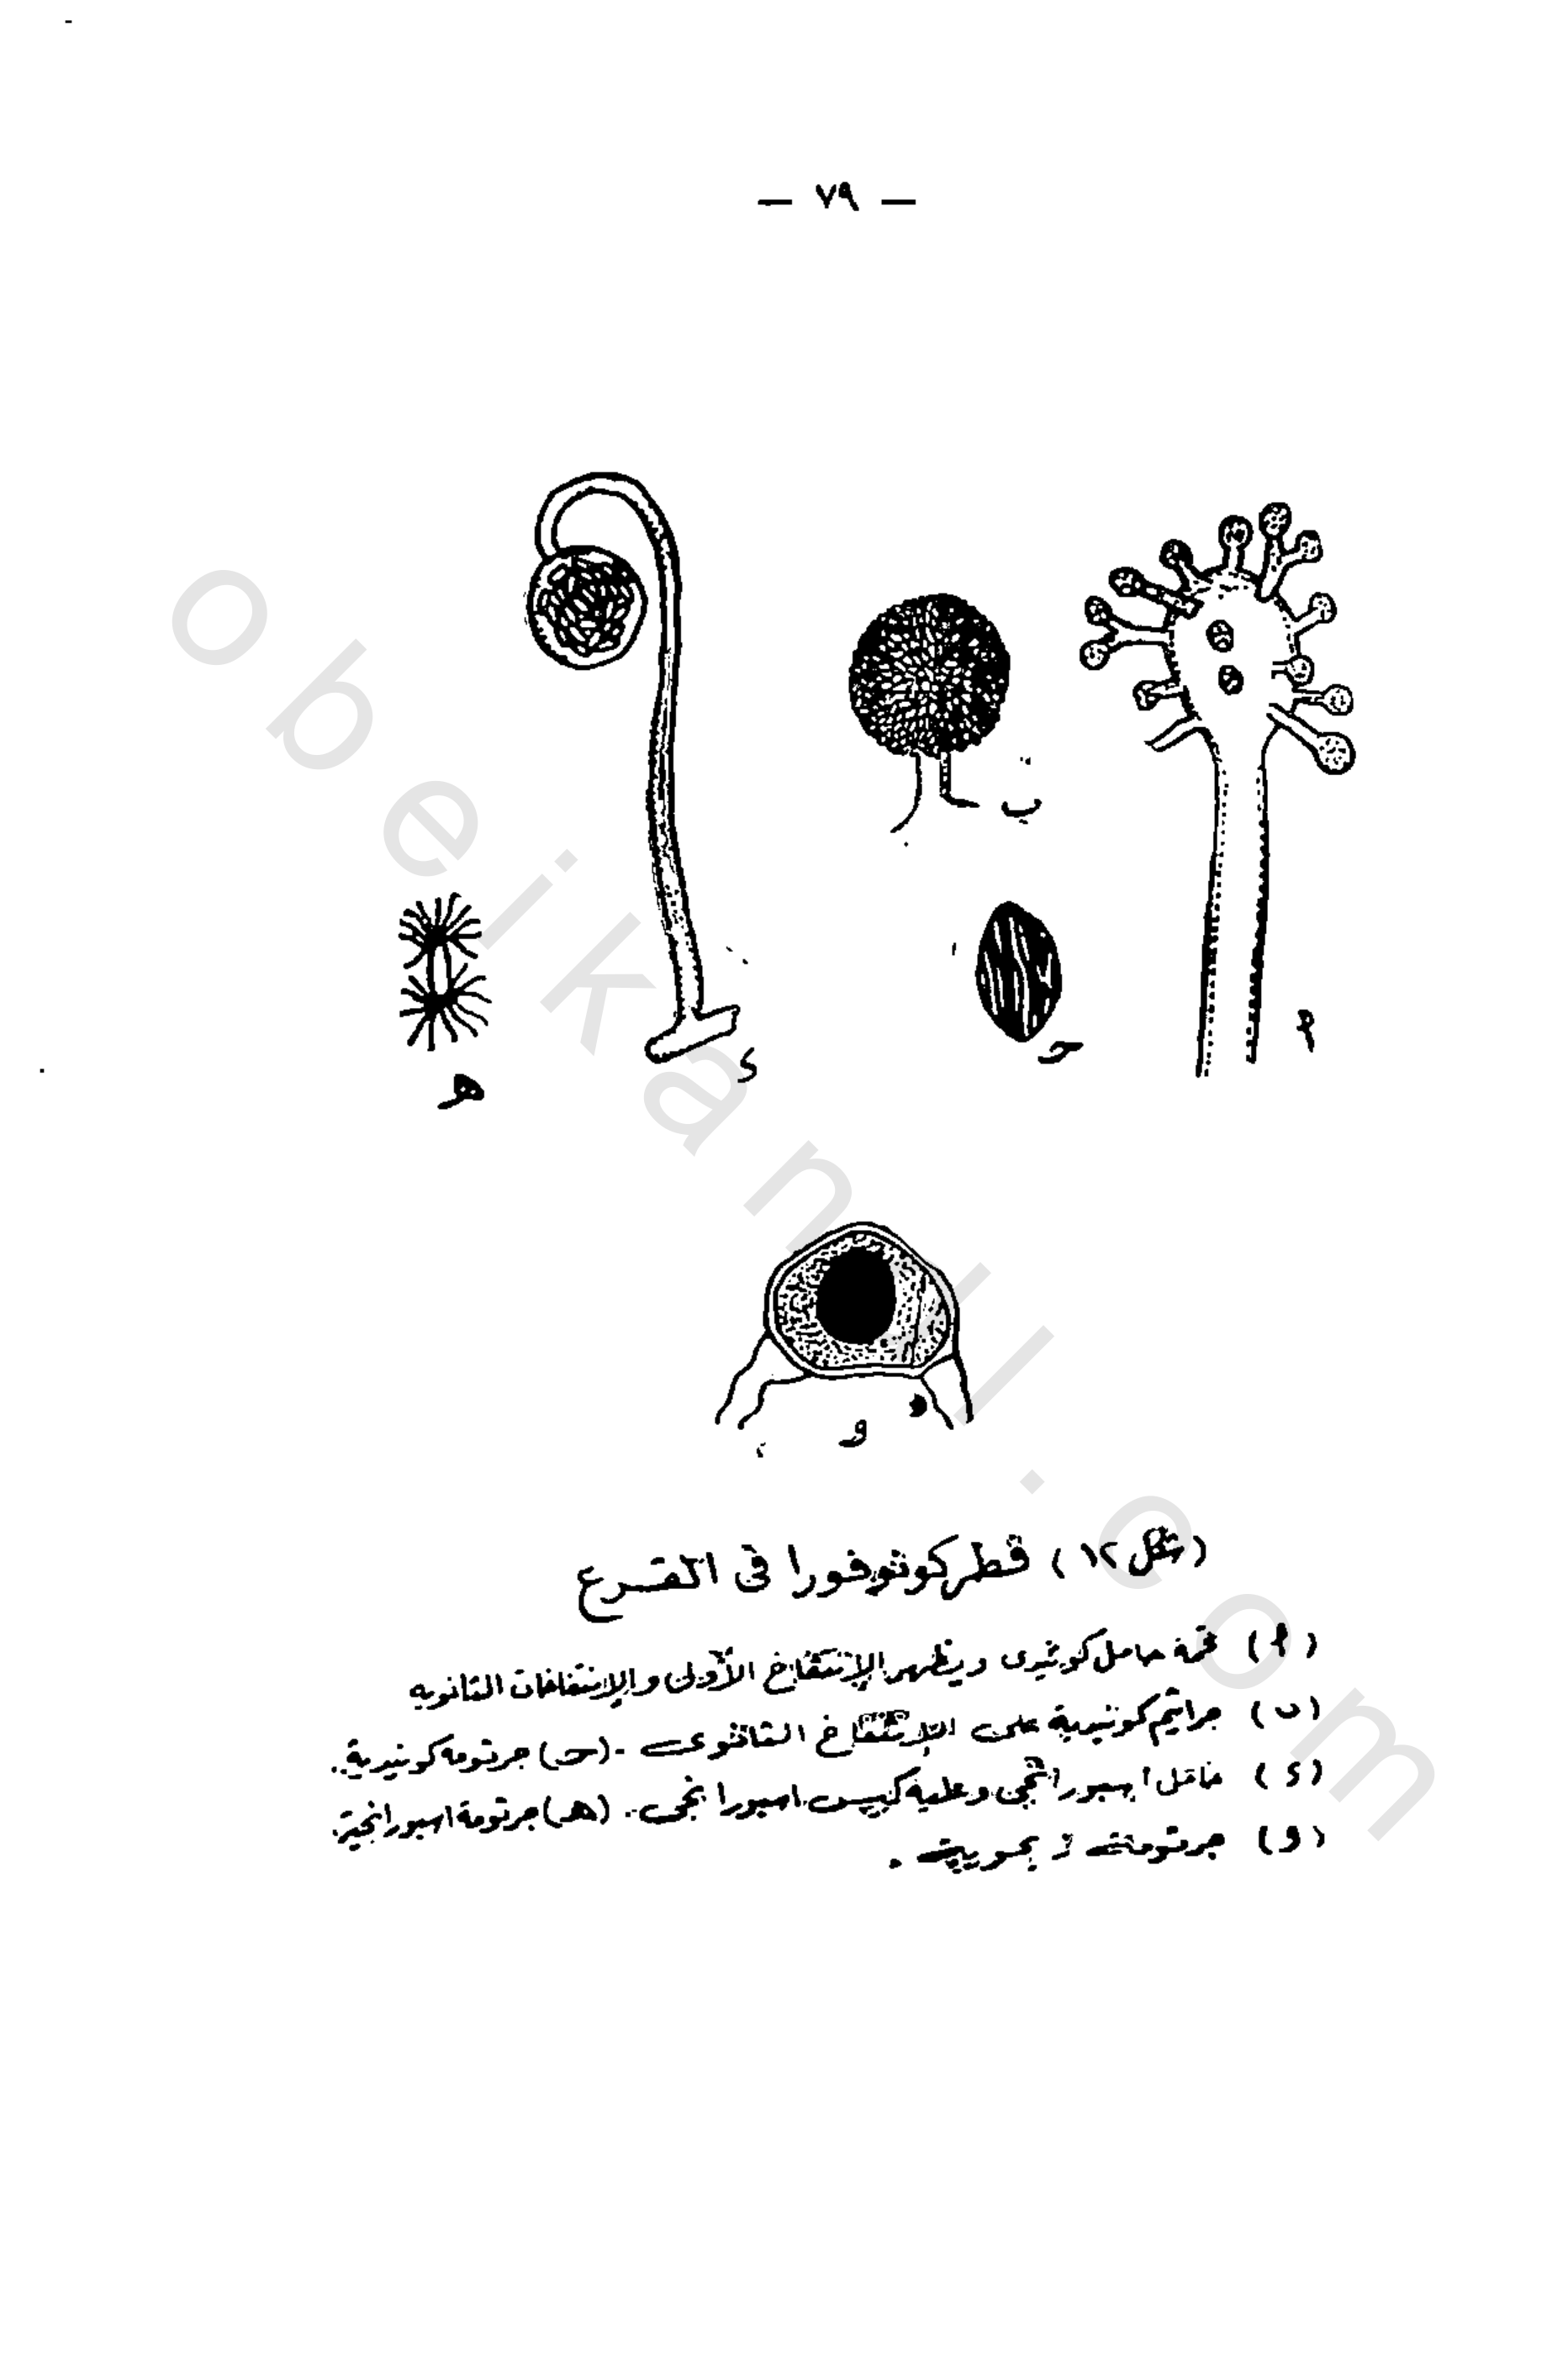 — ٧٩ —
ب
م
حـ
د
هـ
و
(شكل ١٢) فطر كونوفورا فى القرع
(أ) قمة حامل كونيدى ويظهر الإنتفاخ الأولى والإنتفاخات الثانويه
(ب) جراثيم كونيدية على الإنتفاخ الثانوى - (حـ) جرثومه كونيدية.
(د) حامل اسبورانجى وعليه كيس اسبورانجى - (هـ) جرثومة اسبورانجية
(و) جرثومة زيجوريت .
obeikandl.com